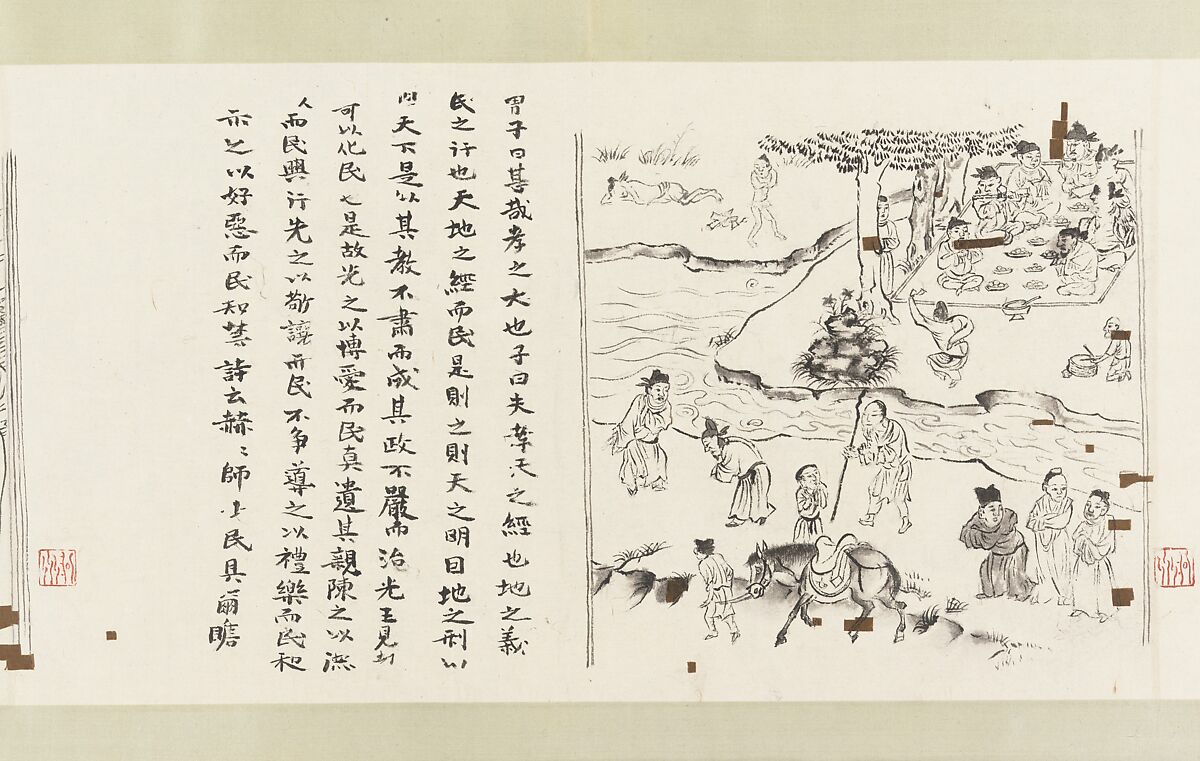 曾子曰甚哉孝之大也子曰夫孝天之經也地之義
民之行也天地之經而民是則之則天之明因地之利以
天下是以其教不肅而成其政不嚴而治先王見
可以化民也是故先之以博愛而民莫遺其親陳之以
而民興行先之以敬讓而民不爭導之以禮樂而民和
示之以好惡而民知禁詩云赫〻師尹民具爾瞻